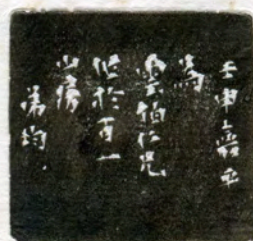 壬申嘉平
為
雲伯仁兄
作於百一
山房
弟均